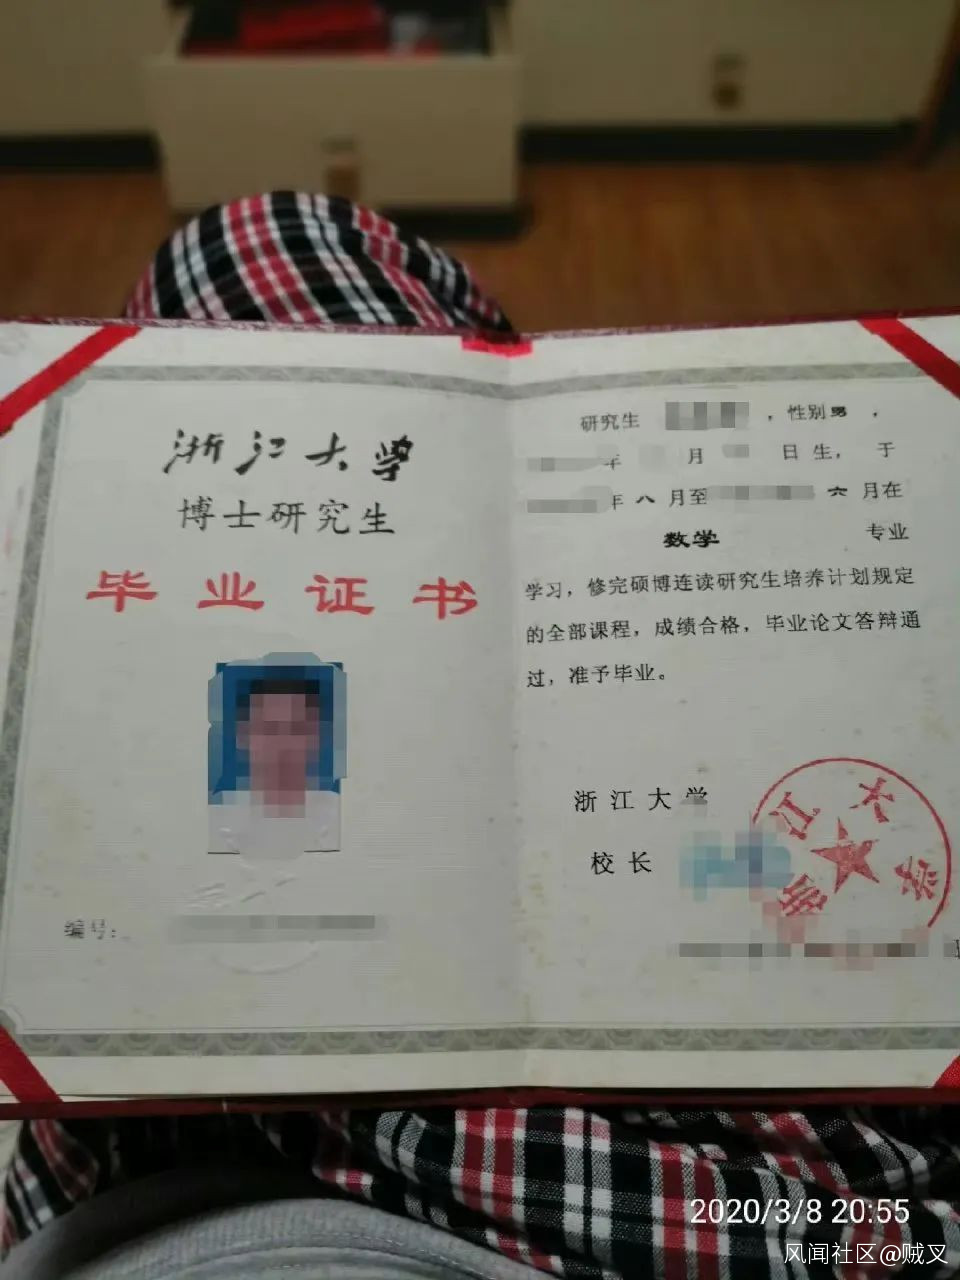 浙江大学
博士研究生
毕业证书
编号:
研究生 ,性别男,
年 月 日生,于
年八月至 六月在
数学 专业
学习,修完硕博连读研究生培养计划规定
的全部课程,成绩合格,毕业论文答辩通
过,准予毕业。
浙江大学
校长
浙江大学
2020/3/8 20:55
风闻社区@贼叉